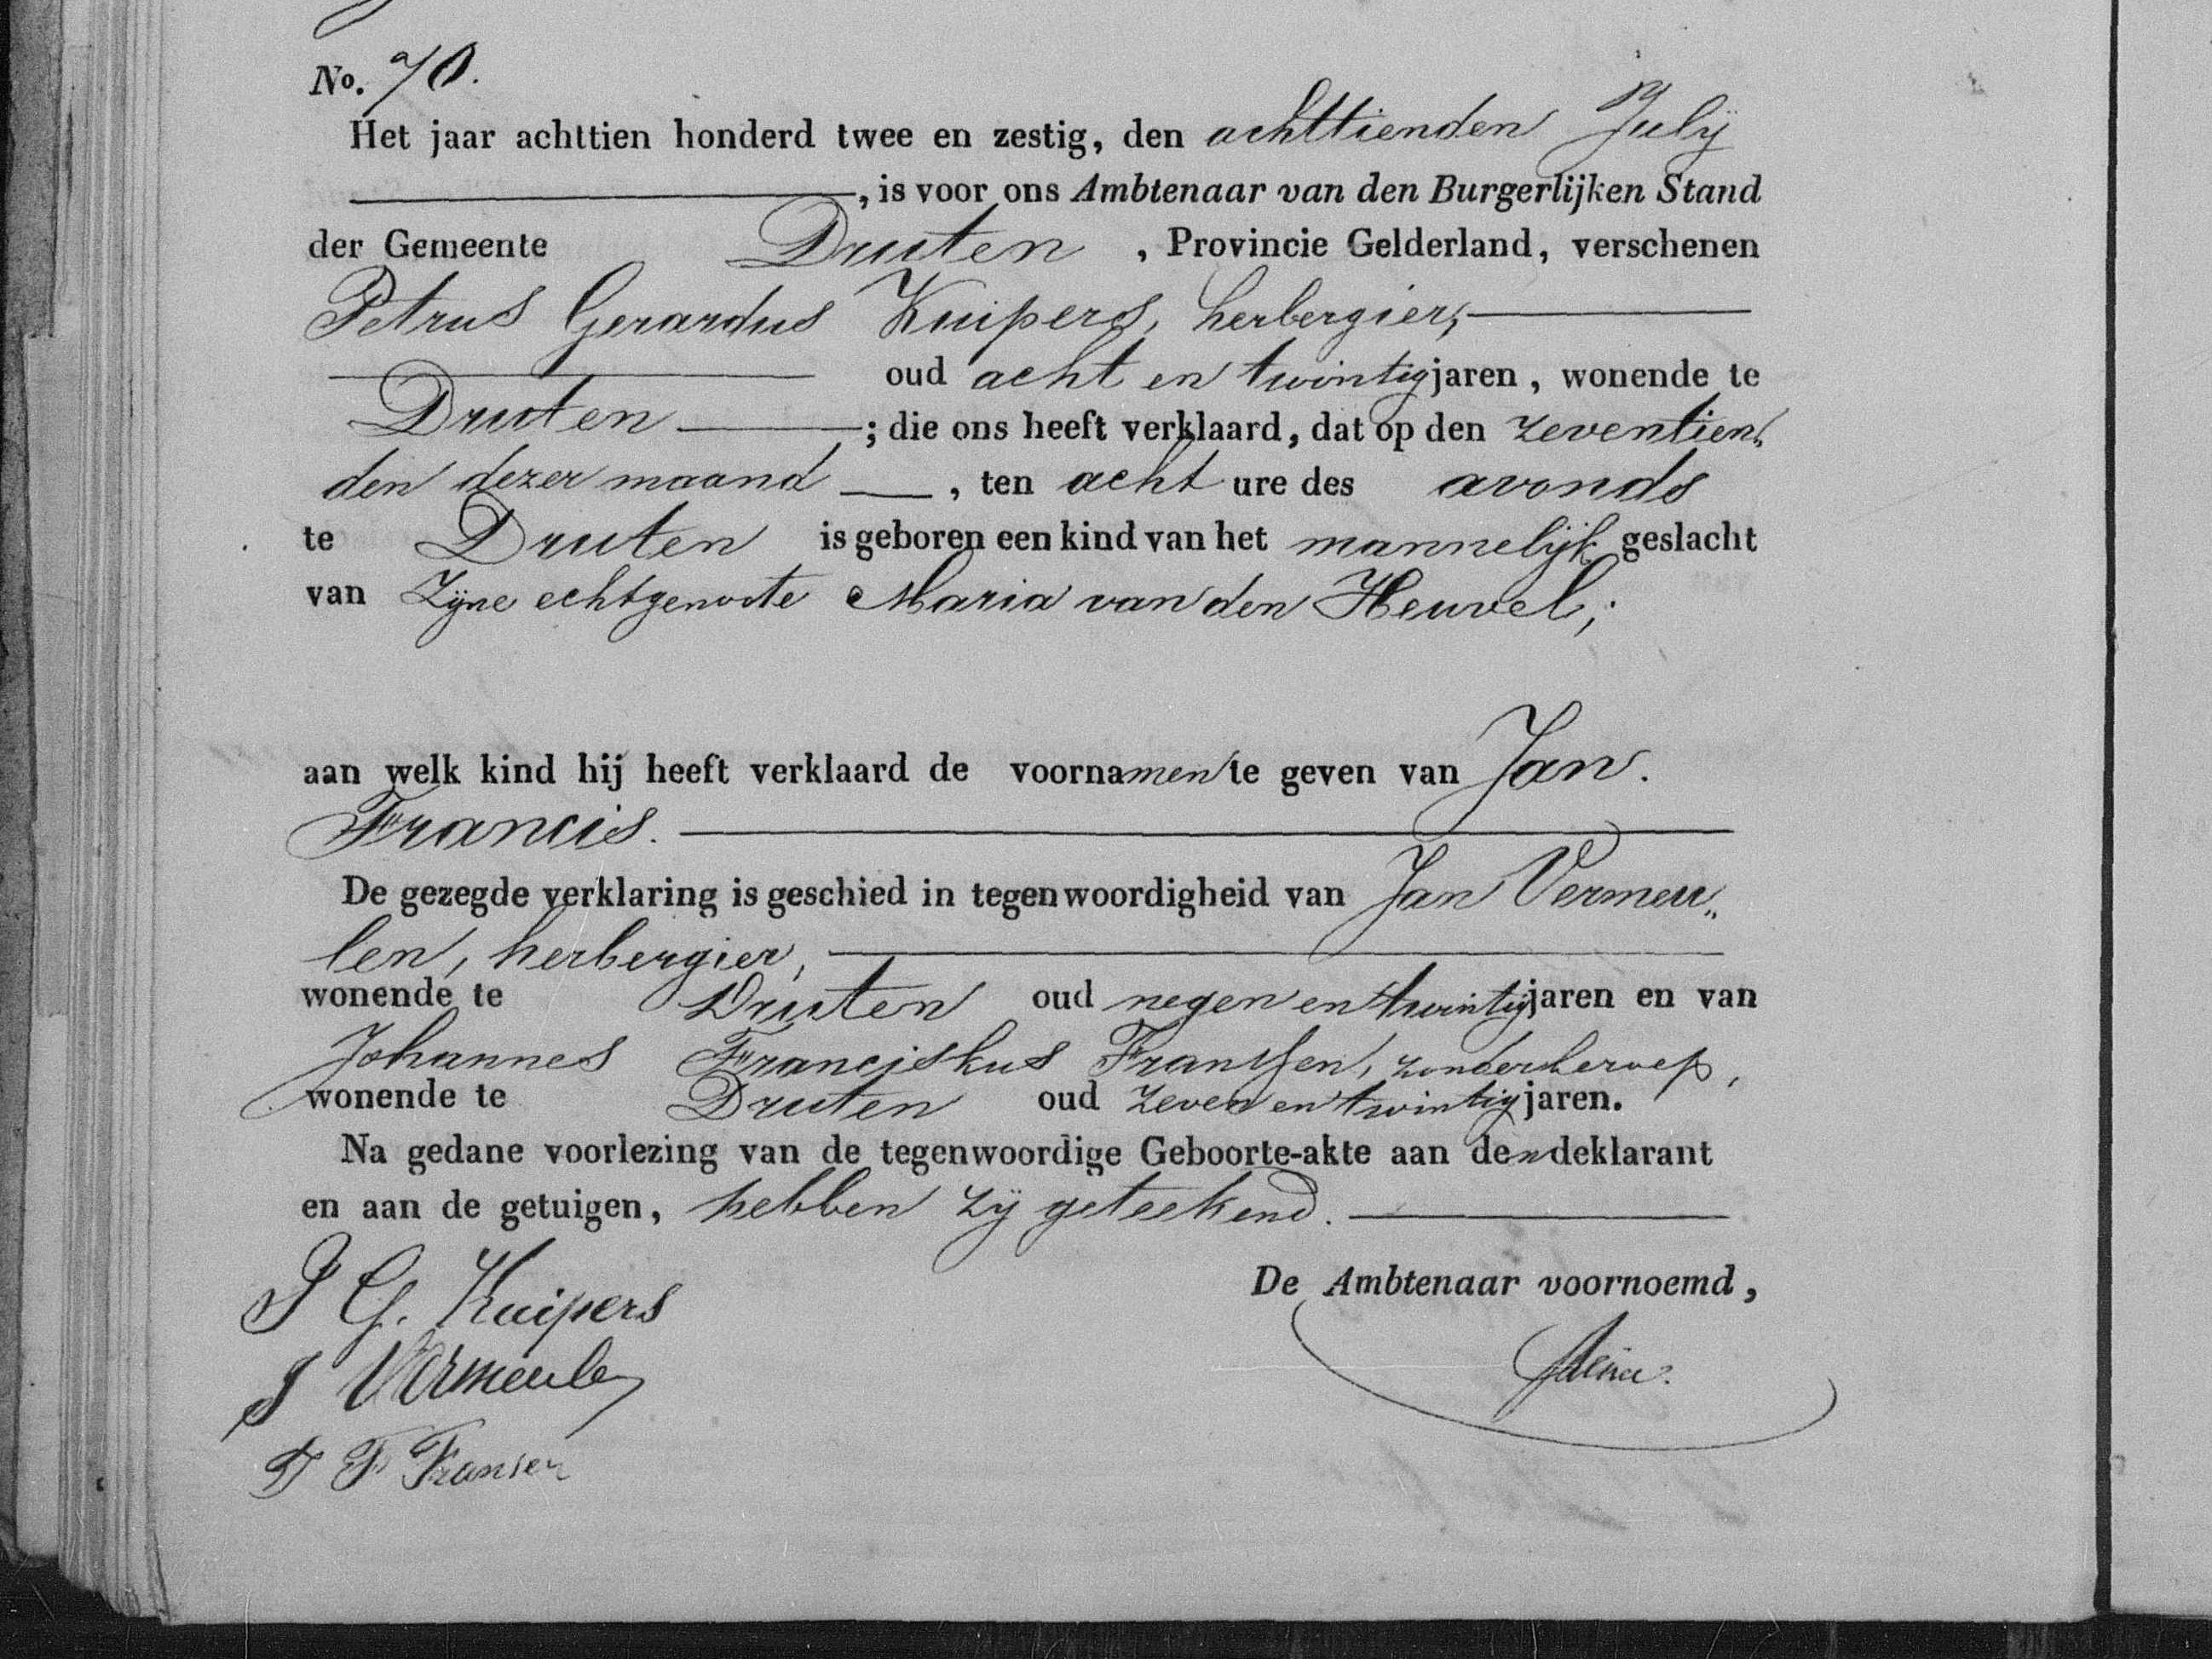 No. 70.
Het jaar achttien honderd twee en zestig, den achttienden Julij
, is voor ons Ambtenaar van den Burgerlijken Stand
der Gemeente Druten, Provincie Gelderland, verschenen
Petrus Gerardus Kuipers, herbergier,
oud acht en twintig jaren, wonende te
Druten ; die ons heeft verklaard, dat op den zeventien„
den dezer maand , ten acht ure des avonds
te Druten is geboren een kind van het mannelijk geslacht
van Zijne echtgenoote Maria van den Heuvel,;
aan welk kind hij heeft verklaard de voornamen te geven van Jan.
Francis.
De gezegde verklaring is geschied in tegenwoordigheid van Jan Vermeu„
len, herbergier,
wonende te Druten oud negen en twintig jaren en van
Johannes Franciskus Franssen, zonder beroep,
wonende te Druten oud zeven en twintig jaren.
Na gedane voorlezing van de tegenwoordige Geboorte-akte aan den deklarant
en aan de getuigen, hebben zij geteekend.
P G. Kuipers
De Ambtenaar voornoemd,
J Vermeulen
J F Fransen